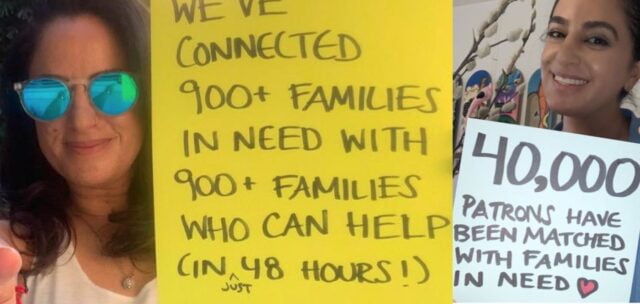 WE'VE
CONNECTED
900+ FAMILIES
IN NEED WITH
900+ FAMILIES
WHO CAN HELP
(IN JUST 48 HOURS!)
40,000
PATRONS HAVE
BEEN MATCHED
WITH FAMILIES
IN NEED ♥